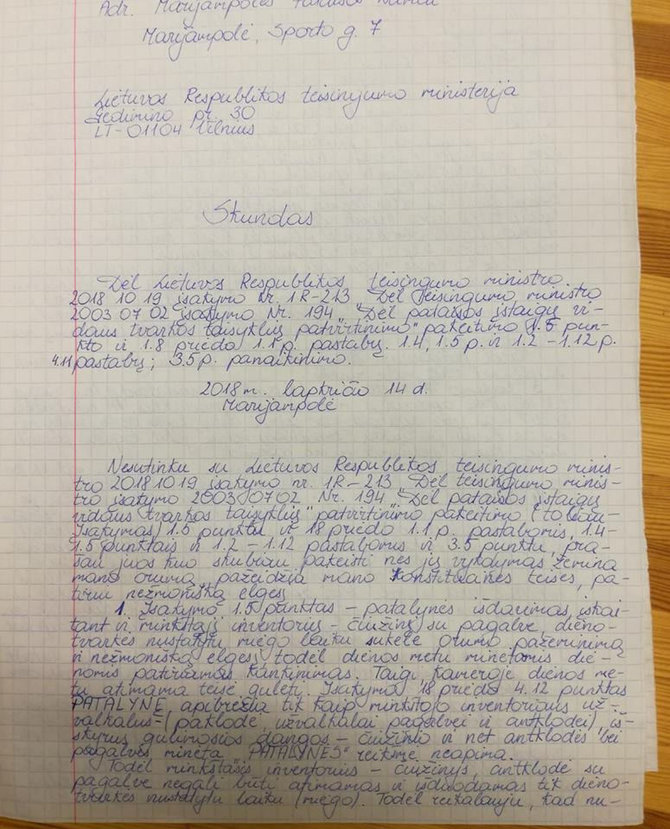 Adr. Marijampolės Pataisos namai
Marijampolė, Sporto g. 7
Lietuvos Respublikos teisingumo ministerija
Gedimino pr. 30
LT-01104 Vilnius
Skundas
Dėl Lietuvos Respublikos teisingumo ministro
2018 10 19 įsakymo Nr. 1R-213 „Dėl teisingumo ministro
2003 07 02 įsakymo Nr. 194 „Dėl pataisos įstaigų vi-
daus tvarkos taisyklių patvirtinimo" pakeitimo 1.5 pun-
kto ir 1.8 priedo 1.1 p. pastabų. 1.4, 1.5 p. ir 1.2 - 1.12 p.
4.11 pastabų; 3.5 p. panaikinimo.
2018 m. lapkričio 14 d.
Marijampolė
Nesutinku su Lietuvos Respublikos teisingumo minis-
tro 2018 10 19 įsakymo nr. 1R-213 „Dėl teisingumo minis-
tro įsakymo 2003 07 02 Nr. 194 „Dėl pataisos įstaigų
vidaus tvarkos taisyklių" patvirtinimo pakeitimo (toliau-
Įsakymas) 1.5 punktu ir 18 priedo 1.1 p. pastabomis, 1.4-
1.5 punktais ir 1.2 - 1.12 pastabomis ir 3.5 punktu, pra-
šau juos kuo skubiau pakeisti nes jų vykdymas žemina
mano orumą, pažeidžia mano konstitucines teises, pa-
tiriu nežmonišką elgesį
1. Įsakymo 1.5 punktas - patalynės išdavimas, įskai-
tant ir minkštąjį inventorių - čiužinį su pagalve dieno-
tvarkės nustatytu miego laiku sukėlė orumo pažeminimą
ir nežmonišką elgesį, todėl dienos metu minėtomis die-
nomis patiriamas kankinimas. Taigi, kameroje dienos me-
tu atimama teisė gulėti. Įsakymo 18 priedo 4.12 punktas
PATALYNĘ apibrėžia tik kaip minkštojo inventoriaus už-
valkalus - (paklodę, užvalkalai pagalvei ir antklodei), iš-
skyrus guliamosios dangos - čiužinio ir net antklodės bei
pagalvės minėta „PATALYNĖS" reikšmė neapima.
Todėl minkštasis inventorius - čiužinys, antklodė su
pagalve negali būti atimamas ir išduodamas tik dieno-
tvarkės nustatytu laiku (miego). Todėl reikalauju, kad nu-